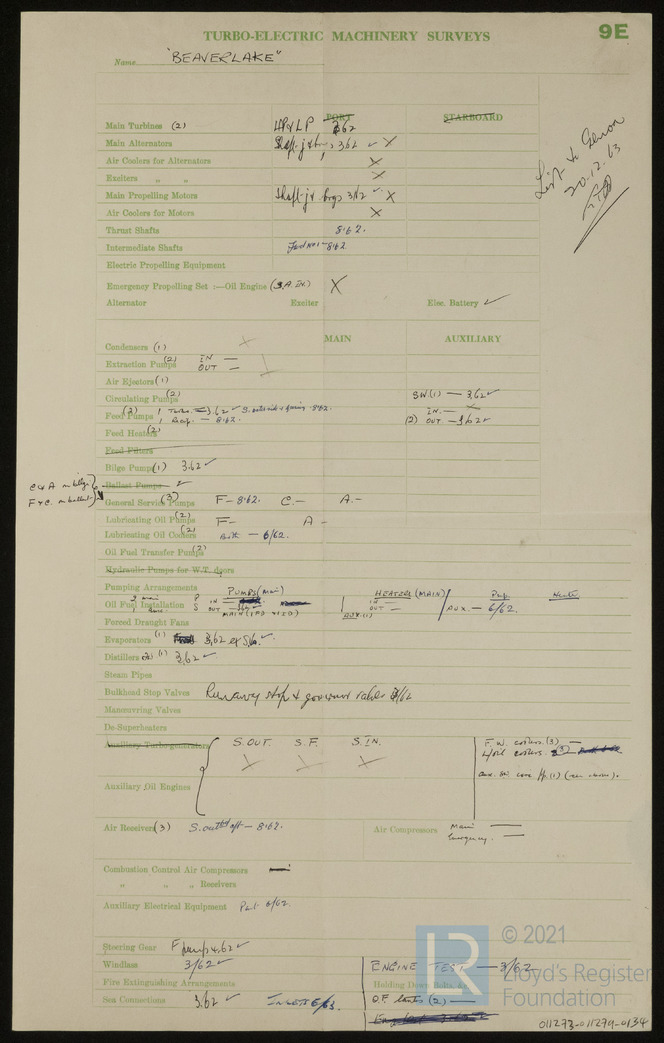 TURBO-ELECTRIC MACHINERY SURVEYS
9E
Name "BEAVERLAKE"
PORT STARBOARD
Main Turbines (2) HP & LP 3/62
Main Alternators 3/62 ✓ X
Air Coolers for Alternators X
Exciters „ „ X
Main Propelling Motors Shaft-js brgs 3/62 ✓ X
Air Coolers for Motors X
Thrust Shafts 8.62.
Intermediate Shafts 8.62
Electric Propelling Equipment
Emergency Propelling Set :—Oil Engine (S.A. IN.) X
Alternator Exciter Elec. Battery ✓
List to
20.12.63
MAIN AUXILIARY
Condensers (1) X
Extraction Pumps (2) IN —
OUT —
Air Ejectors (1)
Circulating Pumps (2) SW.(1) — 3.62 ✓
Feed Pumps (2) 1 Turbo. — 3.62 ✓ 8.62.
1 Recip. — 8.62.
IN. —
(2) OUT — 3.62 ✓
Feed Heaters (2)
Feed Filters
Bilge Pumps (1) 3.62 ✓
Ballast Pumps ✓
C & A m bilge
F & C m ballast
General Service Pumps (3) F – 8.62. C. – A. –
Lubricating Oil Pumps (2) F – A –
Lubricating Oil Coolers (2) Both — 6/62.
Oil Fuel Transfer Pumps (2)
Hydraulic Pumps for W.T. doors
Pumping Arrangements
PUMPS (Main) HEATERS (MAIN) Pump. Heater
Oil Fuel Installation P IN
S OUT
IN —
OUT —
AUX. — 6/62
AUX. (1)
Forced Draught Fans
Evaporators (1) 3.62 ✓
Distillers (1) 3.62 ✓
Steam Pipes
Bulkhead Stop Valves Runaway stop & governor valves 3/62
Manœuvring Valves
De-Superheaters
Auxiliary Turbo-generators
S. OUT. S. F. S. IN.
F. W. coolers (3) —
L/oil coolers (3)
Auxiliary Oil Engines
Air Receivers (3) S. outbd aft — 8.62.
Air Compressors Main —
Emergency. —
Combustion Control Air Compressors —
„ „ „ Receivers
Auxiliary Electrical Equipment Part 6/62.
Steering Gear F pump 4.62 ✓
Windlass 3/62 ✓
ENGINE TEST — 3/62
Fire Extinguishing Arrangements
Holding Down Bolts, &c.
Sea Connections 3.62 ✓ INLETS 6/63.
O.F. tanks (2) —
© 2021
LR
Lloyd's Register
Foundation
011273-011279-0134